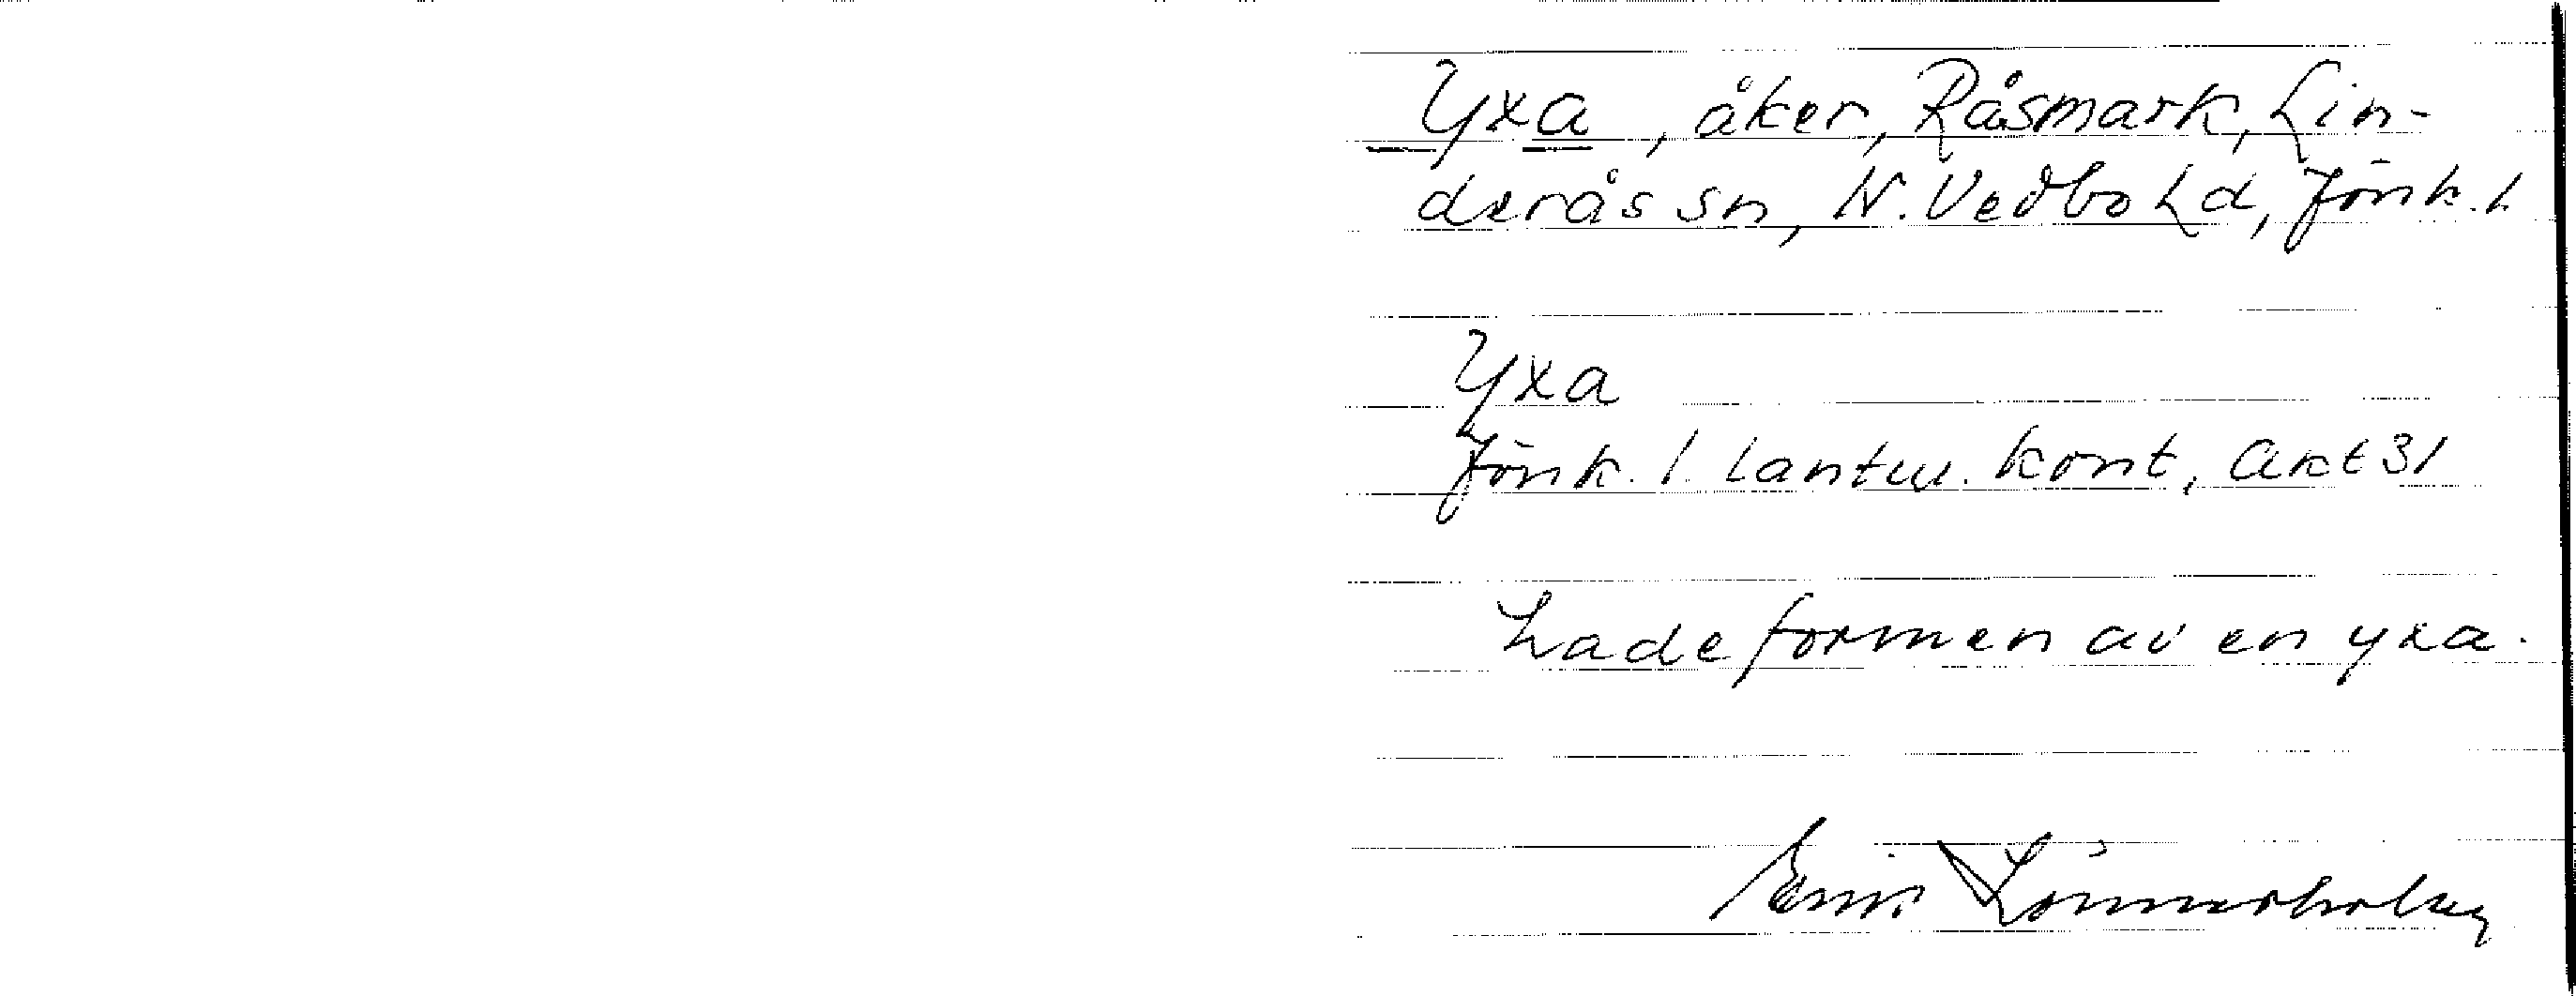 Yxa, åker, Råsmark, Lin-
derås sn, N. Vedbo hd, Jönk. l.
Yxa
Jönk. l. lantm. kont, akt 31
Hade formen av en yxa.